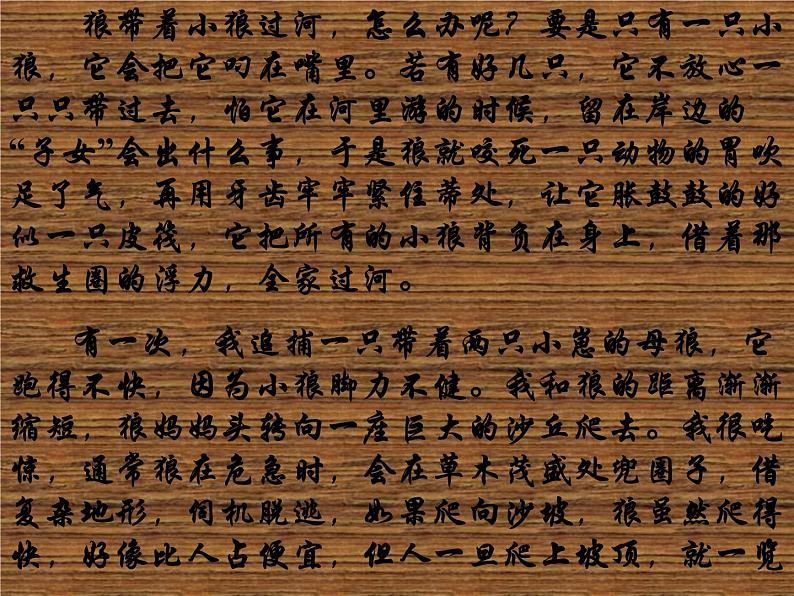 狼带着小狼过河，怎么办呢？要是只有一只小
狼，它会把它叼在嘴里。若有好几只，它不放心一
只只带过去，怕它在河里游的时候，留在岸边的
“子女”会出什么事，于是狼就咬死一只动物的胃吹
足了气，再用牙齿牢牢紧住蒂处，让它胀鼓鼓的好
似一只皮筏，它把所有的小狼背负在身上，借着那
救生圈的浮力，全家过河。
有一次，我追捕一只带着两只小崽的母狼，它
跑得不快，因为小狼脚力不健。我和狼的距离渐渐
缩短，狼妈妈头转向一座巨大的沙丘爬去。我很吃
惊，通常狼在危急时，会在草木茂盛处兜圈子，借
复杂地形，伺机脱逃，如果爬向沙坡，狼虽然爬得
快，好像比人占便宜，但人一旦爬上坡顶，就一览